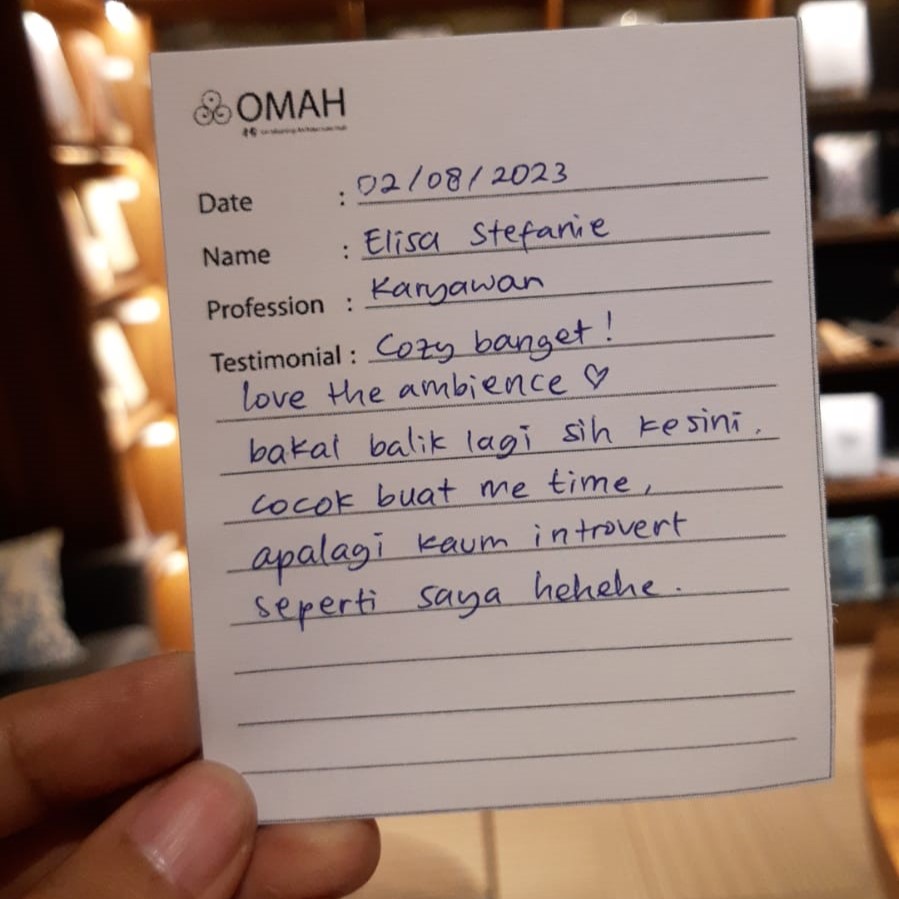 OMAH
Date : 02/08/2023
Name : Elisa Stefanie
Profession : Karyawan
Testimonial : Cozy banget!
love the ambience ♡
bakal balik lagi sih kesini.
cocok buat me time,
apalagi kaum introvert
seperti saya hehehe.